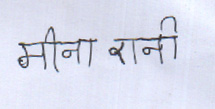 मीना रानी